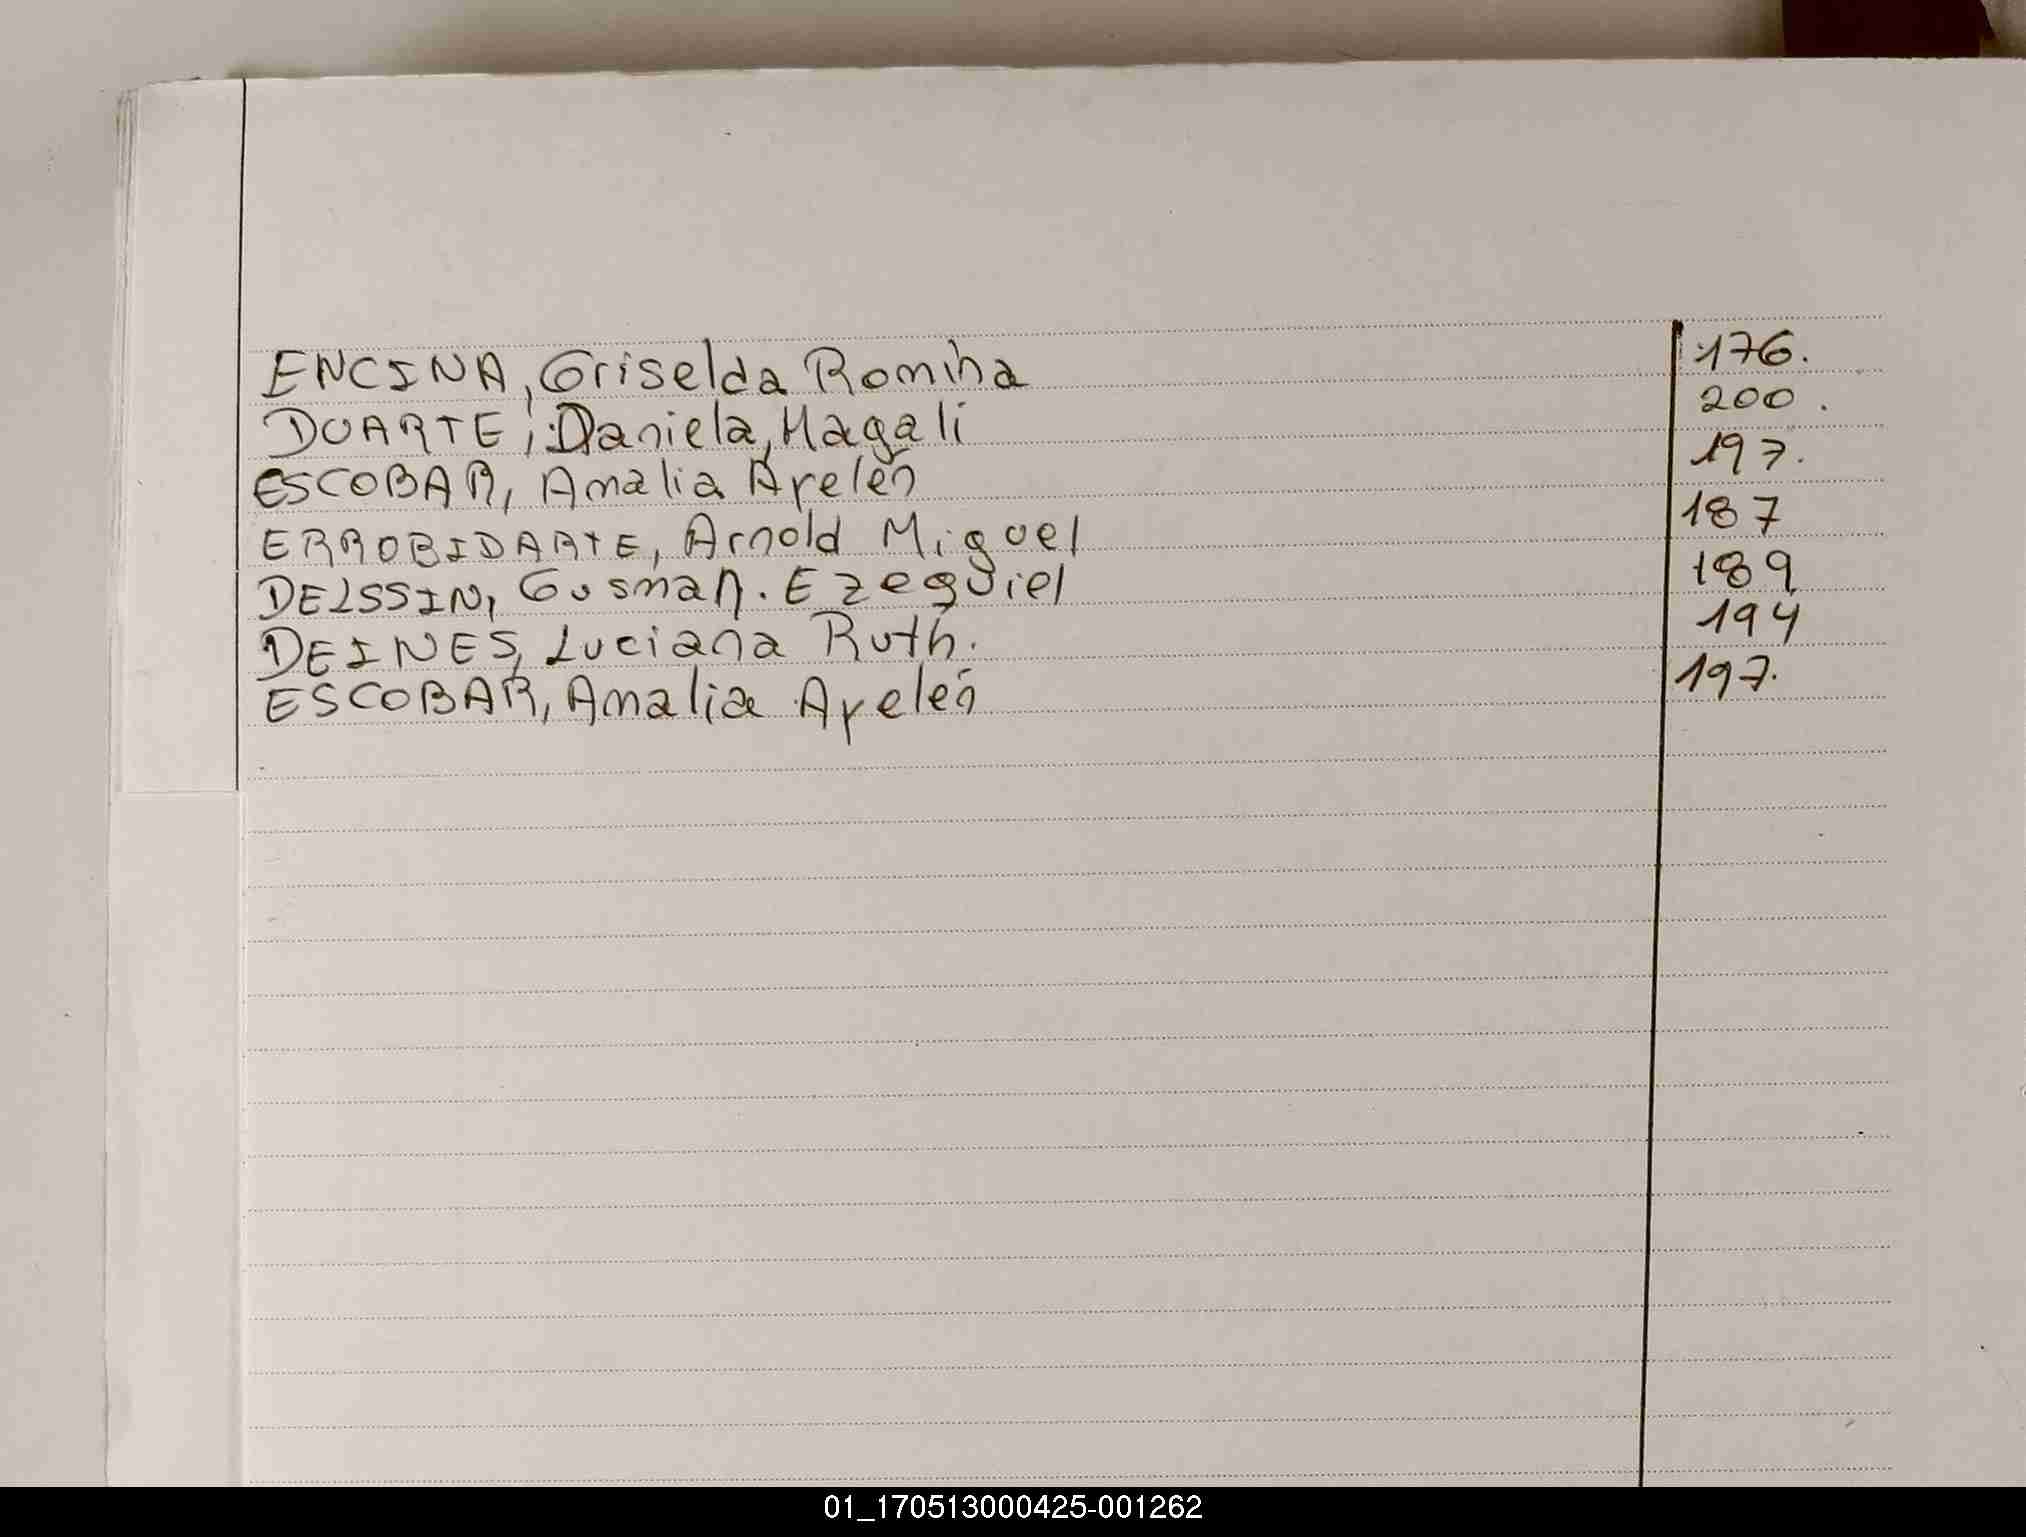 ENCINA, Griselda Romina 176.
DUARTE, Daniela, Magali 200.
ESCOBAR, Amalia Ayelén 197.
ERROBIDARTE, Arnold Miguel 187
DELSSIN, Gusman. Ezequiel 189
DEINES, Luciana Ruth. 194
ESCOBAR, Amalia Ayelén 197.
01_170513000425-001262